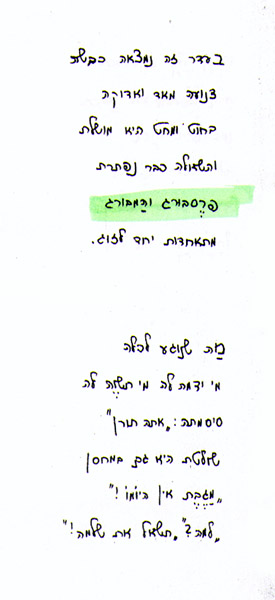 בעדר זה נמצאה כבשת
צנועה מאד ואדוקה
בחוט ומחט היא מושלת
והשאלה כבר נפתרת
פְּרֶסבורג והַמבורג
מתאחדות יחד לזוג.
מַה שנוגע לכלה
מי ידמה לה מי תשוה לה
סיסמתה: "אתה תורן"
שולטת היא גם במחסן
"מַגֶבֶת אין היומו!"
"למה?" "תשאל את שלמה!"